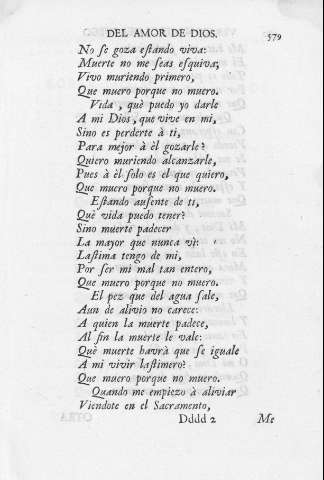 DEL AMOR DE DIOS. 579
No ſe goza eſtando viva:
Muerte no me ſeas eſquiva;
Vivo muriendo primero,
Que muero porque no muero.
Vida, què puedo yo darle
A mi Dios, que vive en mi,
Sino es perderte à ti,
Para mejor à èl gozarle?
Quiero muriendo alcanzarle,
Pues à èl ſolo es el que quiero,
Que muero porque no muero.
Eſtando auſente de ti,
Què vida puedo tener?
Sino muerte padecer
La mayor que nunca vì:
Laſtima tengo de mi,
Por ſer mi mal tan entero,
Que muero porque no muero.
El pez que del agua ſale,
Aun de alivio no carece:
A quien la muerte padece,
Al fin la muerte le vale:
Què muerte havrà que ſe iguale
A mi vivir laſtimero?
Que muero porque no muero.
Quando me empiezo à aliviar
Viendote en el Sacramento,
Dddd 2 Me